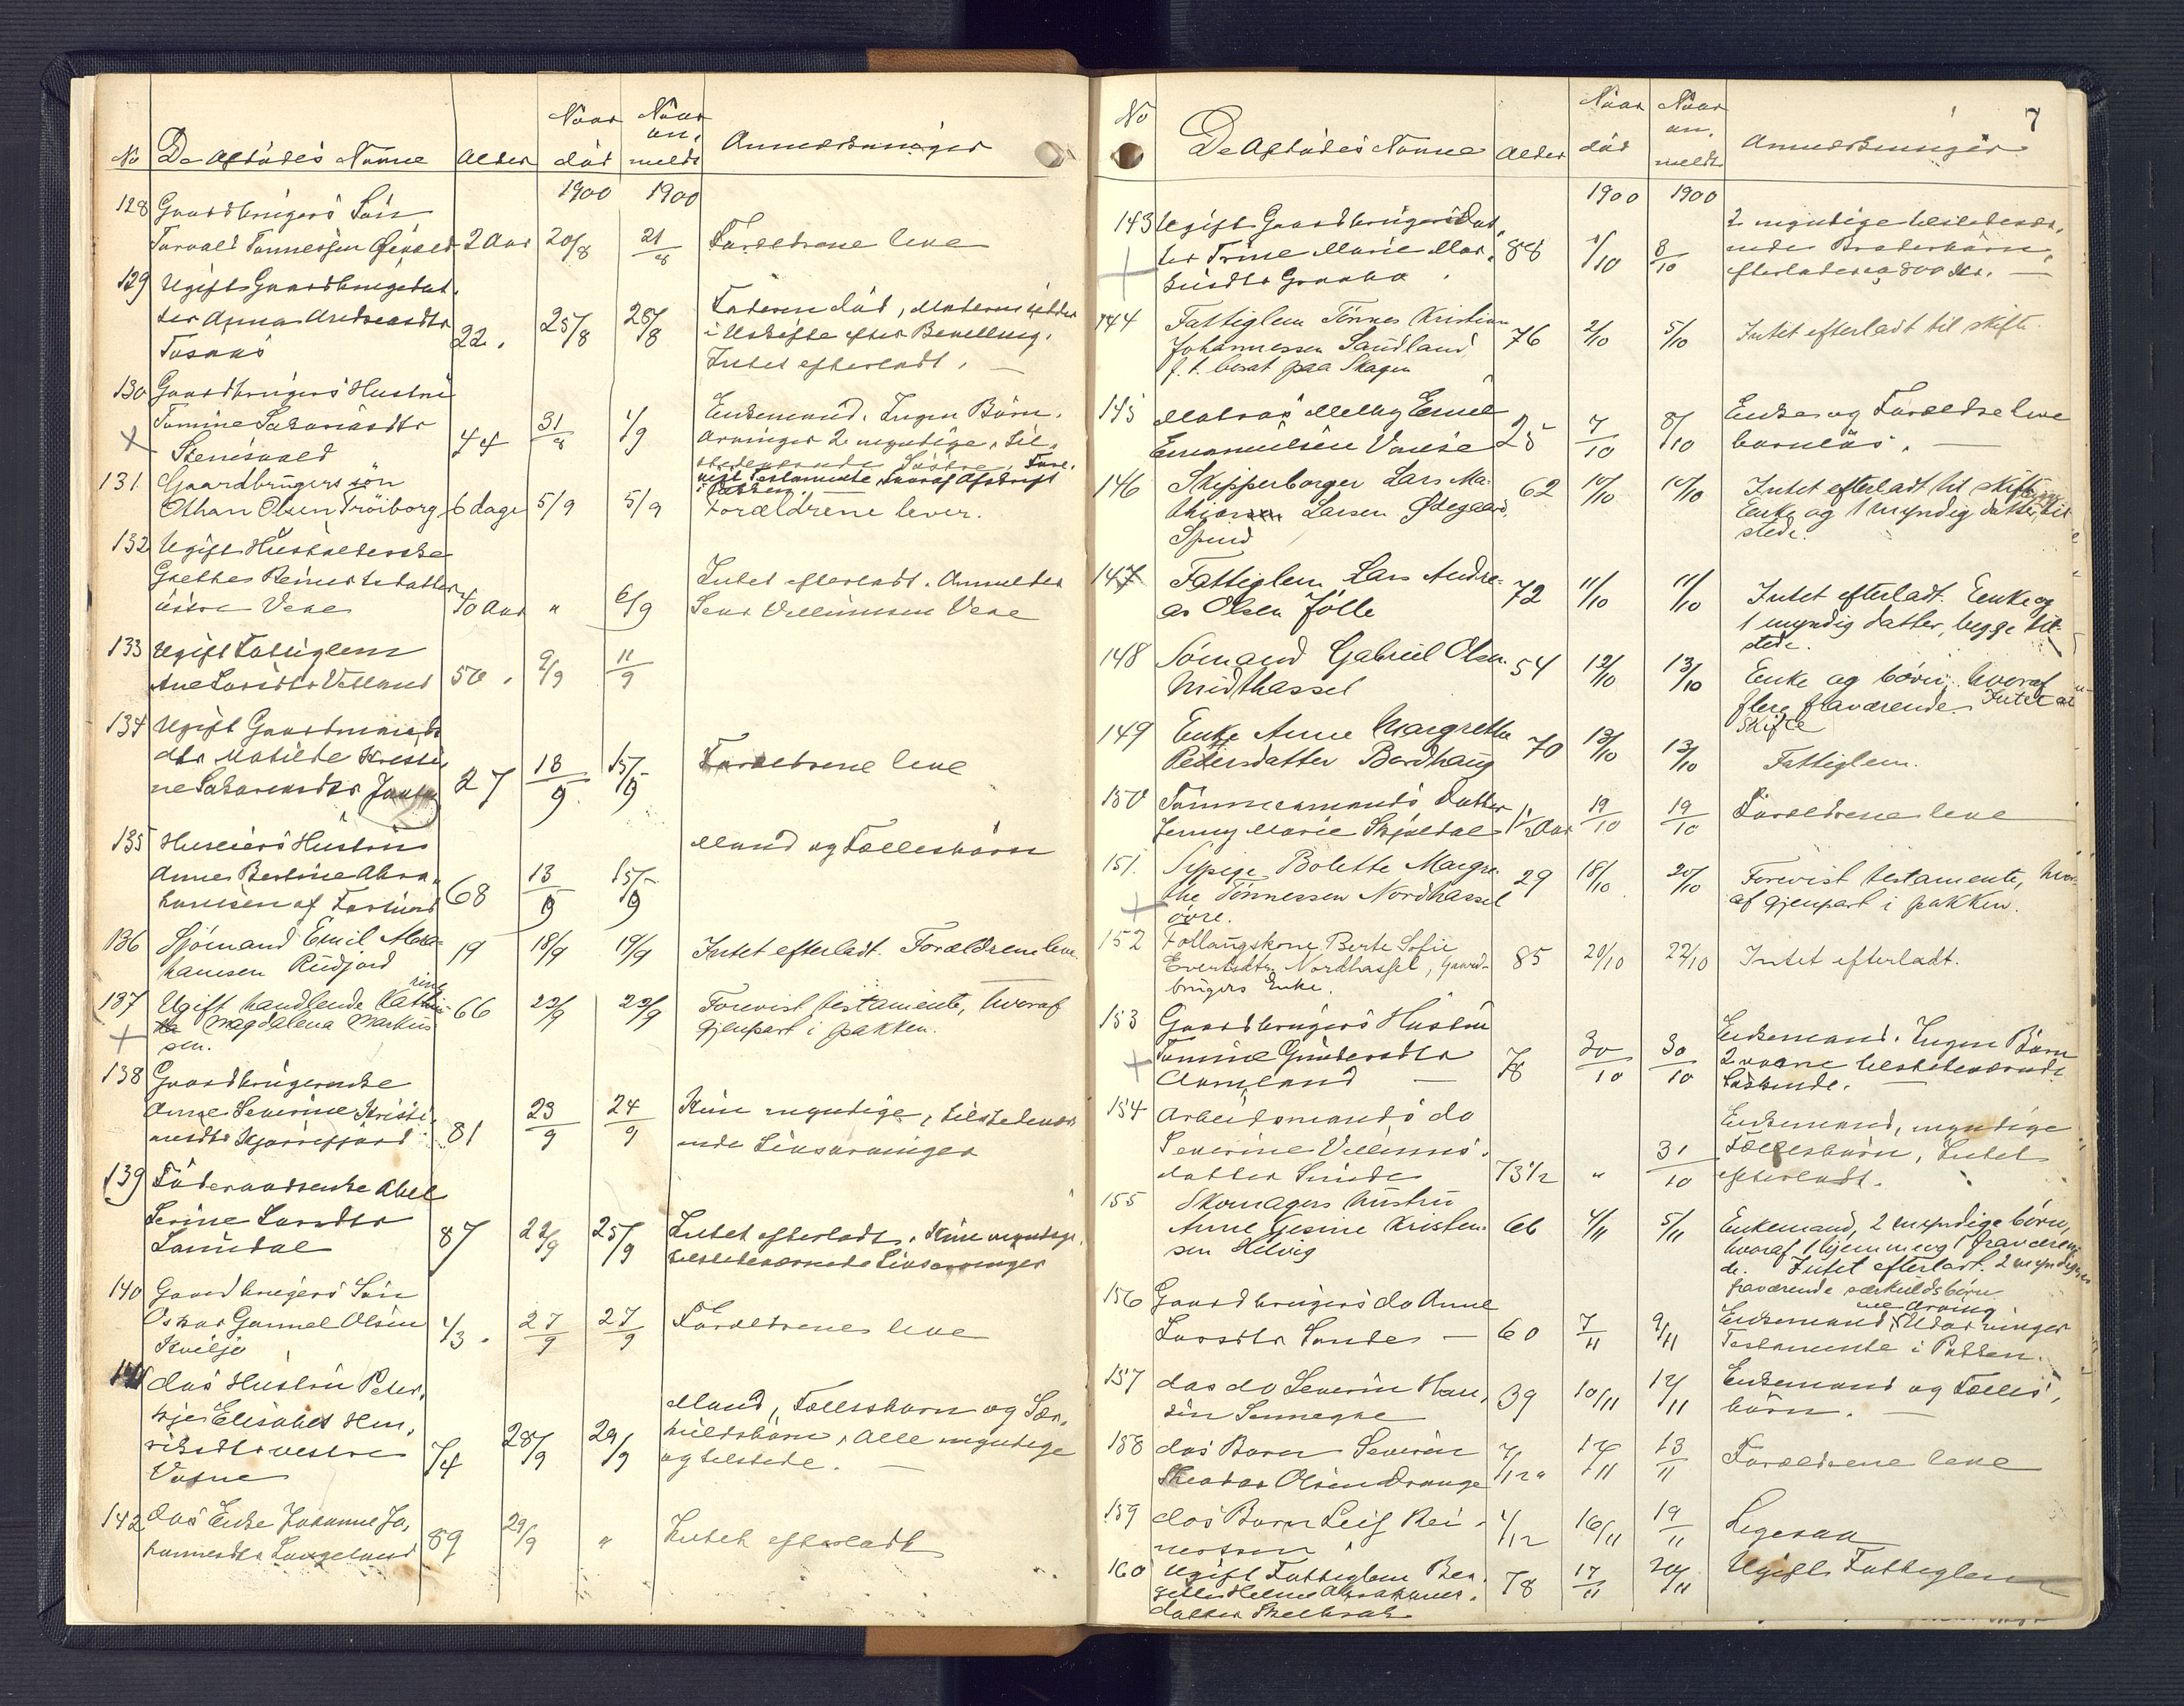 No De Afdødes Navne Alder Naar død Naar an. meldt Anmerkninger
1900 1900
128 Gaardbrugers Søn
Torvald Tønnesen 2 Aar 20/8 21/8 Forældrene leve
129 Ugift Gaardbrugerdat.
ter Anna Andreasdtr 22. 25/8 28/8 Faderen død, Moderen sidder
i Uskifte efter Bevilling.
Intet efterladt.
130 Gaardbrugers Hustru
Tomine Sakariasdtr 44 31/8 1/9 Enkemand. Ingen Børn.
Stensvald Arvinger 2 myndige, til-
stedeværende Søstre. Fore-
vist Testamente, hvoraf Afskrift
i Pakken.
131. Gaardbrugers søn
Othan Olsen Trøiborg 6 dage 5/9 5/9 Forældrene lever.
132 Ugift Husholderske
Grethe Reinertsdatter 40 Aar " 6/9 Intet efterladt. Anmelder
østre Vere Vere
133 Ugift Fattiglem
Ane Larsdtr Vetland 50. 9/9 11/9
134 Ugift Gaardmands
dtr Matilde Kristi-
ne 27 13/9 15/9 Forældrene leve
135 Huseiers Hustru
Anne Bertine Abra- 68 13/9 15/9 Mand og Fællesbørn
hamsen af Farsund
136 Sjømand Emil Abra-
hamsen Rudjord 19 18/9 19/9 Intet efterladt. Forældrene leve.
137 Ugift handlende Kath
rine Magdalena Markus 66 22/9 22/9 Forevist testamente, hvoraf
sen. gjenpart i pakken.
138 Gaardbrugerenke
Anne Severine Kristi- 81 23/9 24/9 Kun myndige, tilstedevær-
ansdtr ende Livsarvinger
139 Føderaadsenke Abel
Serine Larsdtr 87 22/9 25/9 Intet efterladt. Kun myndige,
Lamdal tilstedeværende Livsarvinger
140 Gaardbrugers Søn
Oskar Gunnel Olsen 1/3. 27/9 27/9 Forældrene leve
Kviljo
141 das Hustru Peter-
kje Elisabet Hen-
riksdtr vestre 74 28/9 29/9 Mand, Fællesbørn og Sær-
Vatne kuldsbørn, alle myndige
og tilstede.
142 das Enke Johanne Jo-
hannesdtr Langeland 89 29/9 " Intet efterladt
7
No De Afdødes Navne Alder Naar død Naar an. meldt Anmerkninger
1900 1900
143 Ugift Gaardbrugers Dat-
ter Trine Marie Mar- 88 1/10 3/10 2 myndige tilstedevær-
kusdtr ende Broderbørn,
efterlader ca 800 Kr.
144 Fattiglem Tønnes Kristian
Johannessen Sandland 76 2/10 5/10 Intet efterladt til skifte.
f. t. bosat paa Skagen
145 Matros Melby Emil
Emanuelsen Vanse 25 7/10 8/10 Enke og Forældre leve
barnløs.
146 Skipperborger Lars Ma-
thiassen Larsen Ødegaard, 62 10/10 10/10 Intet efterladt til skifte.
Spind Enke og 1 myndig datter, til
stede.
147 Fattiglem Lars Andre-
as Olsen Jølle 72 11/10 11/10 Intet efterladt. Enke og
1 myndig datter, begge til-
stede.
148 Sømand Gabriel Olsen 54 12/10 13/10 Enke og børn, hvoraf
Midthassel flere fraværende. Intet at
skifte
149 Enke Anne Margrethe
Pedersdatter Bordhaug 70 13/10 13/10 Fattiglem.
150 Tømmermands datter
Jenny Marie Skjoldal 1 1/2 Aar 19/10 19/10 Forældrene leve
151. Sypige Bolette Margre-
the Tønnessen Nordhassel 29 18/10 20/10 Forevist testamente, hvor-
øvre. af gjenpart i pakken.
152 Follaugskone Berte Sofie
Evertsdtr. Nordhassel, Gaard- 85 20/10 22/10 Intet efterladt.
brugers Enke.
153 Gaardbrugers Hustru
Tomine Gundersdtr 78 30/10 30/10 Enkemand. Ingen Børn
2 voxne tilstedeværende
Søskende.
154 Arbeidsmands do
Severine Villums-
datter Sunde 73 1/2 " 31/10 Enkemand, myndige
Fællesbørn, Intet
efterladt.
155 Skomagers hustru
Anne Gesine Kristen- 66 4/11 5/11 Enkemand, 2 myndige børn,
sen Helvig hvoraf 1 hjemme og 1 fraværen
de. Intet efterladt. 2 myndige
fraværende særkuldsbørn
156 Gaardbrugers do Anne
Larsdtr Sande 60 7/11 9/11 Enkemand
Testamente i Pakken.
157 das do Severin Han-
sen 39 10/11 12/11 Enkemand og Fælles-
børn.
158 das Barn Severin
Theodor Olsen Drange 7/12 12/11 13/11 Forældrene leve
159 das Barn Leif Rei-
nertsen 4/12 16/11 19/11 Ligesaa
160 Ugift Fattiglem Ber-
gitte Helene Abrahams- 78 17/11 20/11 Ugift Fattiglem
datter